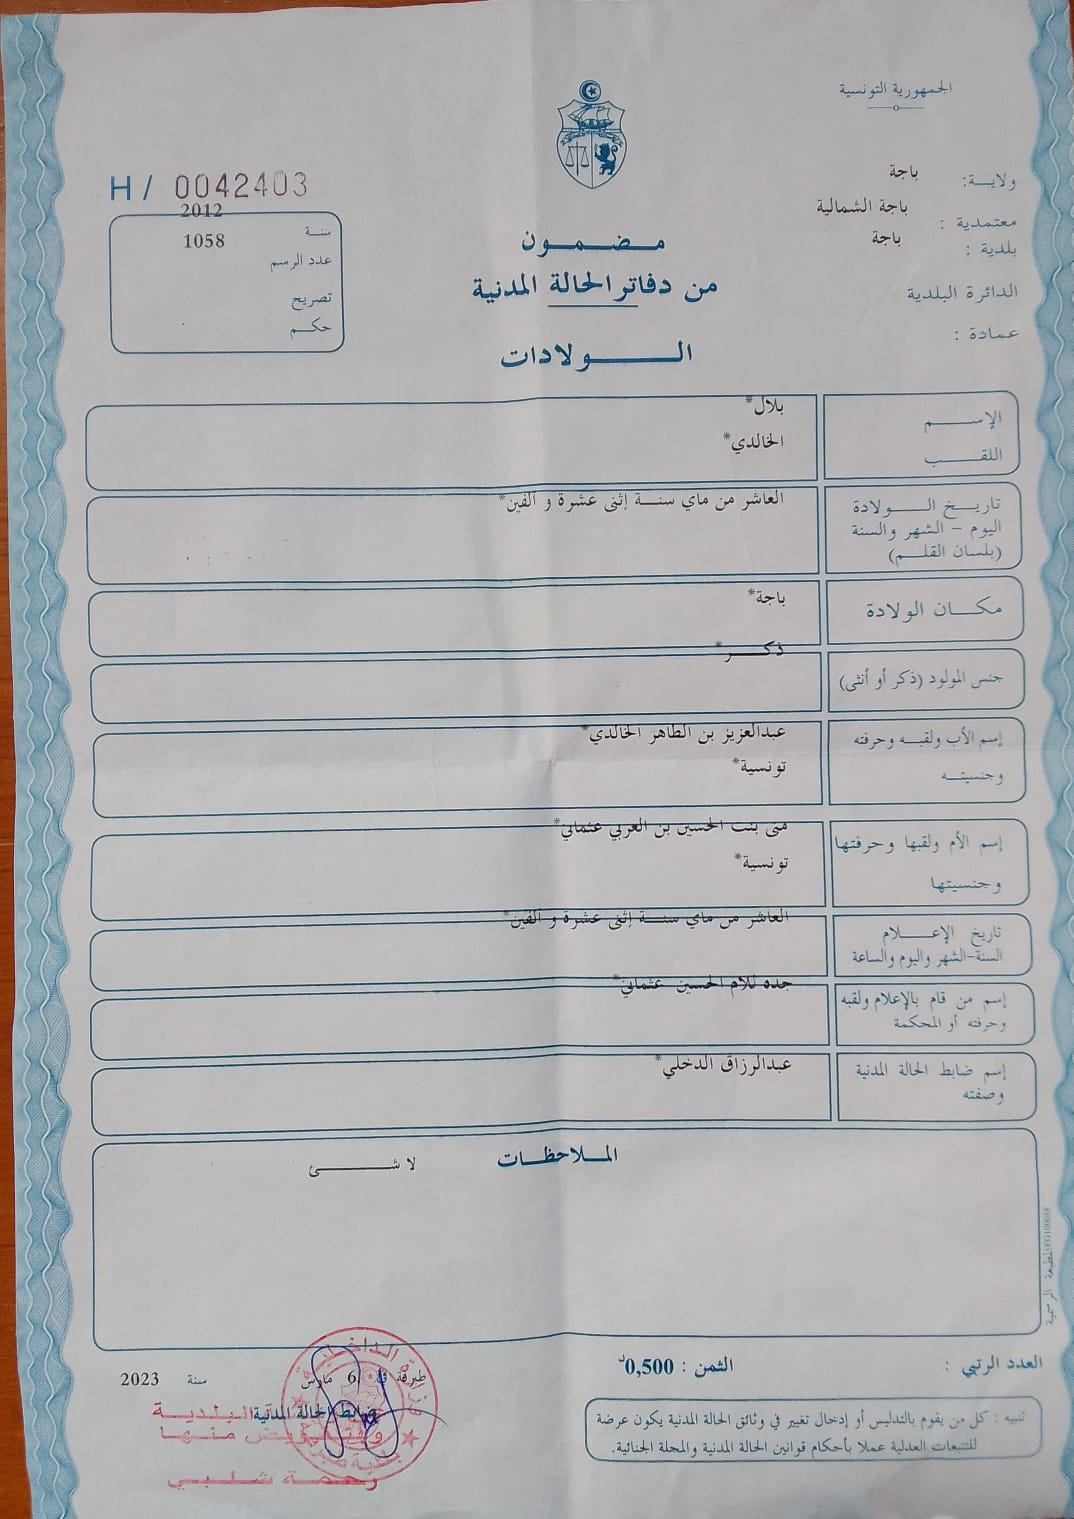 الجمهورية التونسية
ولاية: باجة
معتمدية : باجة الشمالية
بلدية : باجة
الدائرة البلدية
عمادة :
H / 0042403
سنة 2012
عدد الرسم 1058
تصريح
حكم
مضمون
من دفاتر الحالة المدنية
الولادات
الإسم بلال*
اللقب الخالدي*
تاريخ الولادة العاشر من ماي سنة إثنى عشرة و ألفين*
اليوم - الشهر والسنة
(بلسان القلم)
مكان الولادة باجة*
جنس المولود (ذكر أو أنثى) ذكر*
إسم الأب ولقبه وحرفته عبدالعزيز بن الطاهر الخالدي*
وجنسيته تونسية*
إسم الأم ولقبها وحرفتها منى بنت الحسين بن العربي عثماني*
وجنسيتها تونسية*
تاريخ الإعلام العاشر من ماي سنة إثنى عشرة و ألفين*
السنة-الشهر واليوم والساعة
إسم من قام بالإعلام ولقبه جده للام الحسين عثماني*
وحرفته أو المحكمة
إسم ضابط الحالة المدنية عبدالرزاق الدخلي*
وصفته
الملاحظات
لا شئ
العدد الرتبي :
الثمن : 0,500د
طبرقة في 6 مارس سنة 2023
ضابط الحالة المدنية
البلدية
وبتفويض منها
رحمة شلبي
تنبيه : كل من يقوم بالتدليس أو إدخال تغيير في وثائق الحالة المدنية يكون عرضة
للتتبعات العدلية عملا بأحكام قوانين الحالة المدنية والمجلة الجنائية.